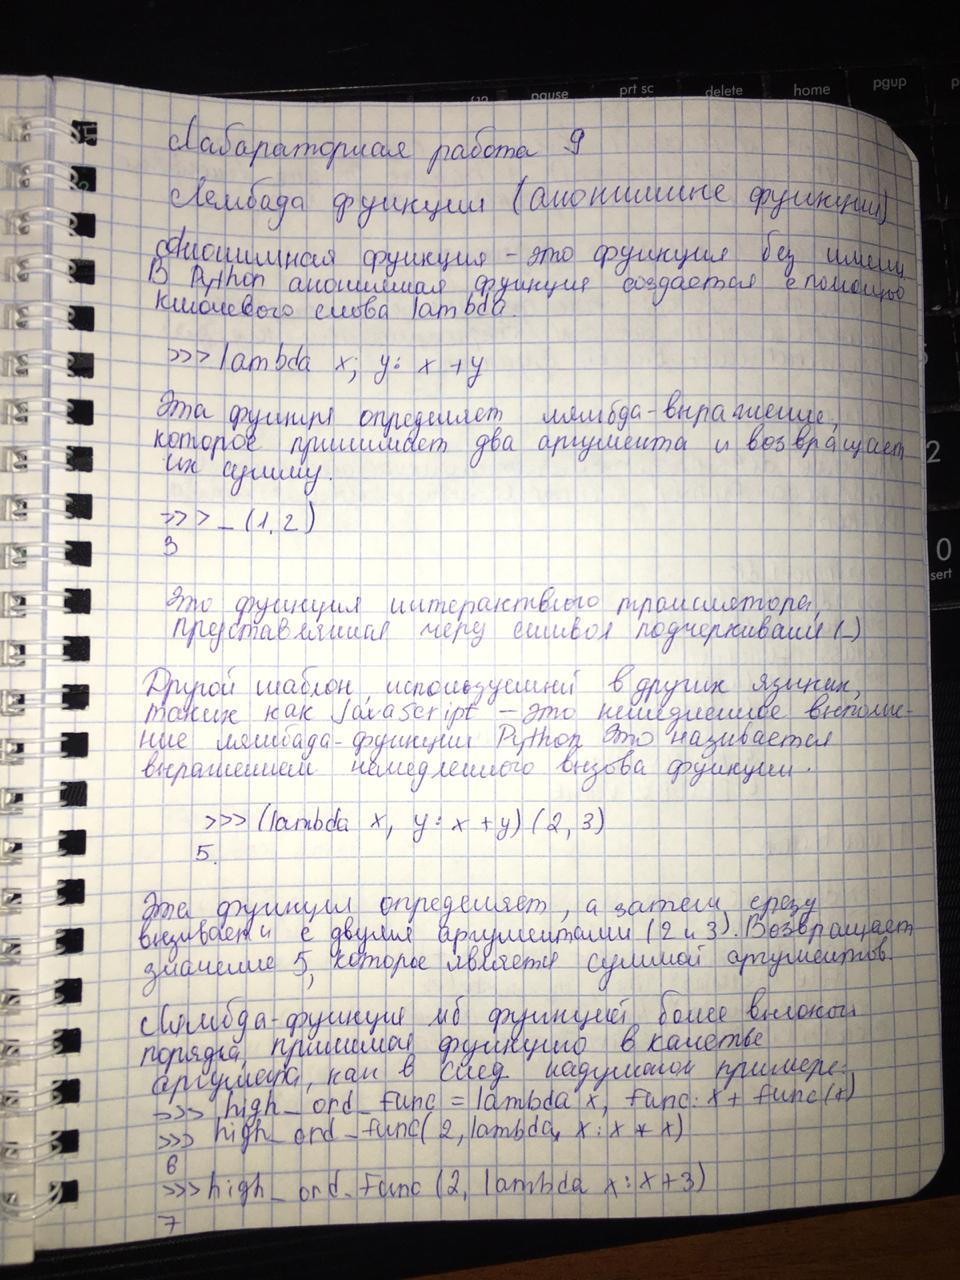 pause
prt sc
delete
home
pgup
Лабараторная работа 9
Лембада функции (анонимные функции)
Анонимная функция - это функция без имени
В Python анонимная функция создается с помощью
ключевого слова lambda.
>>> lambda x; y: x + y
Эта функция определяет лямбда-выражение,
которое принимает два аргумента и возвращает
их сумму.
>>> _ (1,2)
3
2
0
sert
Это функция интерактвного транслятора,
представленная через символ подчеркивания (_)
Другой шаблон, используемый в других языках,
таких как JavaScript - это немедленное выполне-
ние лямбада-функции Python Это называется
выражением немедленного вызова функции.
>>> (lambda x, y: x + y) (2, 3)
5.
Эта функция определяет, а затем сразу
вызывает и с двумя аргументами (2 и 3). Возвращает
значение 5, которое является суммой аргументов.
Лямбда-функция мб функцией более высокого
порядка, принимая функцию в качетве
аргумета, как в след надуманом примере:
>>> high_ord_func = lambda x, func: x + func(x)
>>> high_ord_func( 2, lambda, x: x * x)
6
>>> high_ord_func (2, lambda x: x + 3)
7